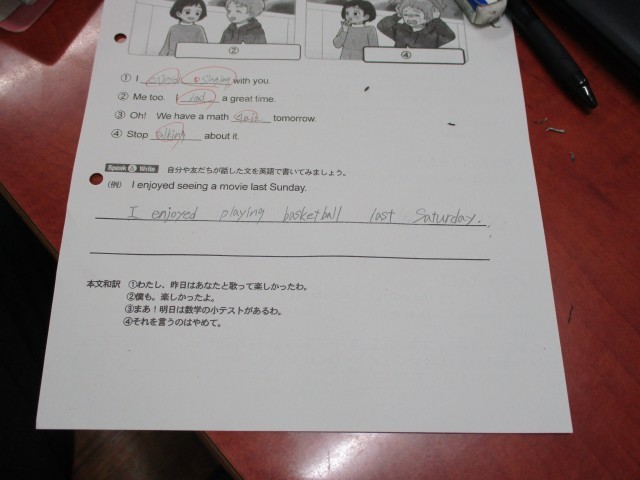 ②
④
① I enjoyed singing with you.
② Me too. I had a great time.
③ Oh! We have a math tomorrow.
④ Stop talking about it.
Speak & Write 自分や友だちが話した文を英語で書いてみましょう。
(例) I enjoyed seeing a movie last Sunday.
I enjoyed playing basketball last Saturday.
本文和訳 ①わたし、昨日はあなたと歌って楽しかったわ。
②僕も。楽しかったよ。
③まあ!明日は数学の小テストがあるわ。
④それを言うのはやめて。